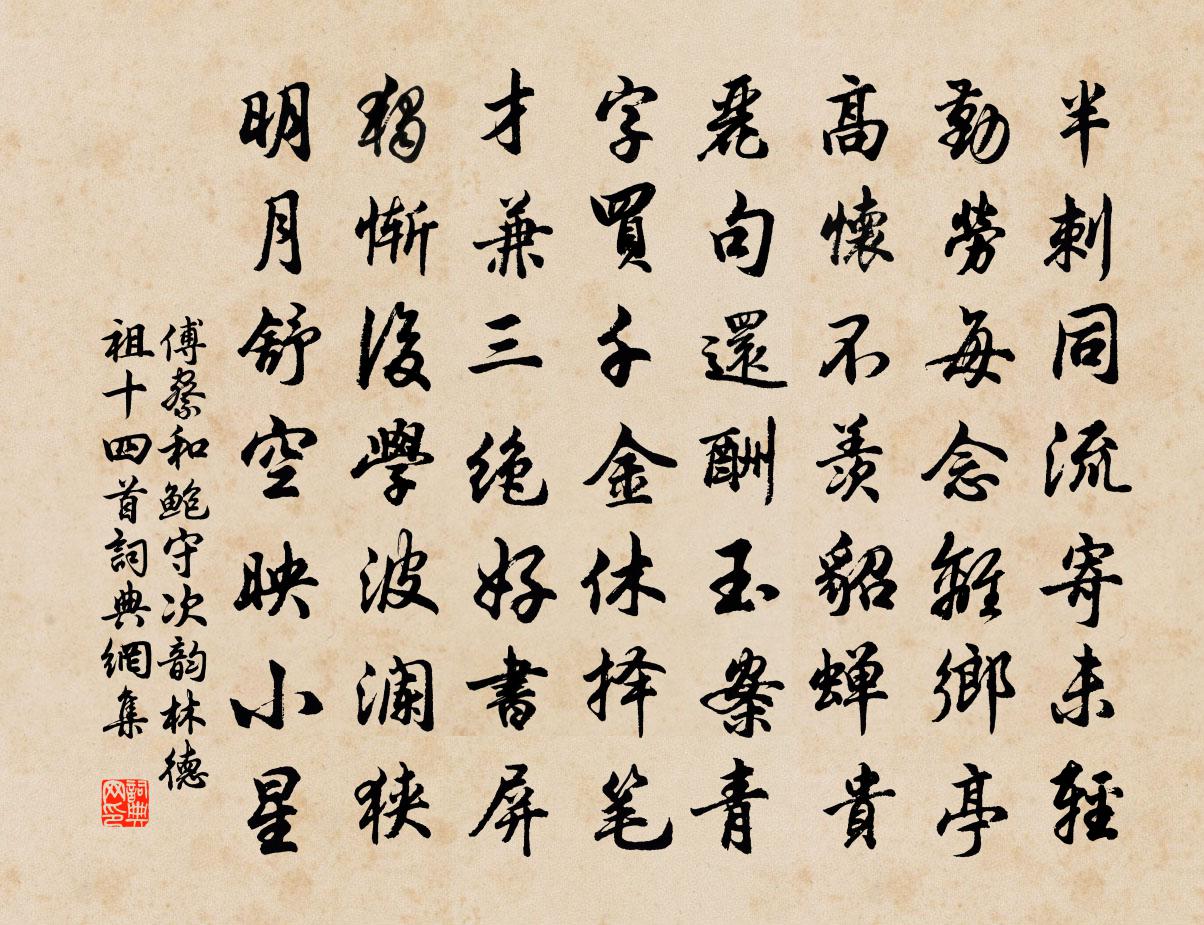 半刺同流寄未輕
勤勞每念離鄉亭
高懷不羨貂蟬貴
麗句還酬玉案青
字買千金休择笔
才兼三绝好書屏
獨慚後學波瀾狹
明月舒空映小星
傅察和鮑守次韵林德
祖十四首詞典網集
詞典
网印